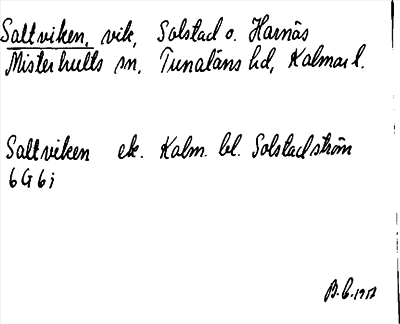 Saltviken, vik, Solstad o. Harnäs
Misterhults sn, Tunaläns hd, Kalmar l.
Saltviken ek. Kalm. bl. Solstadström
6G6i